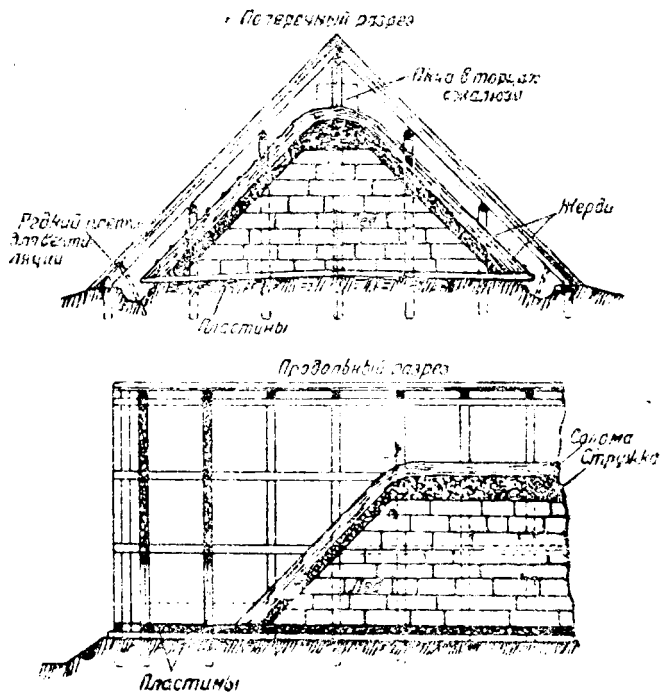 Поперечный разрез
Окна в торцах
с жалюзи
Жерди
Редкий
для венти
ляции
Пластины
Продольный разрез
Солома
Стружка
Лед
Пластины